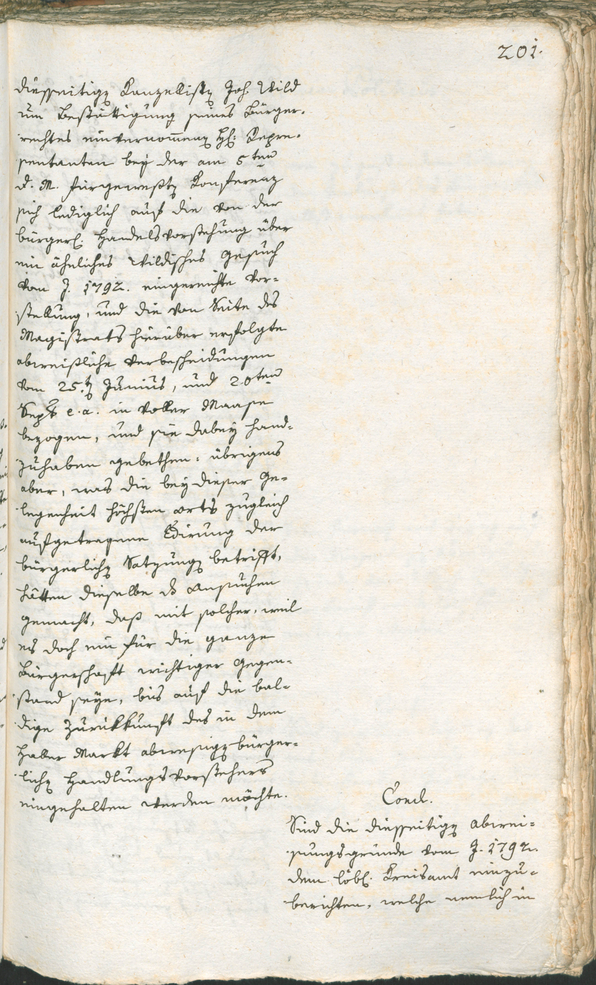 201.
diesseitige Kanzelisten Joh. Wild
um Bestättigung seines Bürger-
rechtes einvernommene HH: Repre-
sentanten bey der am 5ten
d. M. fürgewesten Konferenz
sich lediglich auf die von der
bürgerl. Handelsvorstehung über
ein ähnliches Wildisches Gesuch
vom J. 1792. eingereichte Vor-
stellung, und die von Seite des
Magistrats hierüber erfolgte
abweisliche Verbescheidungen
vom 25.t Junius, und 20ten
Septb. e. a. in voller Maase
bezogen, und sie dabey hand-
zuhaben gebethen. übrigens
aber, was die bey dieser Ge-
legenheit höchsten orts zugleich
aufgetragene Edirung der
bürgerlichen Satzungen betrifft,
hätten dieselbe das Ansuchen
gemacht, daß mit solcher, weil
es doch ein für die ganze
Bürgerschafft wichtiger Gegen-
stand seye, bis auf die bal-
dige Zurükkunft des in dem
Haller Markt abwesigen bürger-
lichen Handlungsvorstehers
eingehalten werden möchte.
Concl.
Sind die diesseitigen Abwei-
sungsgründe vom J. 1792.
dem löbl. Kreisamt einzu-
berichten, welche nemlich in